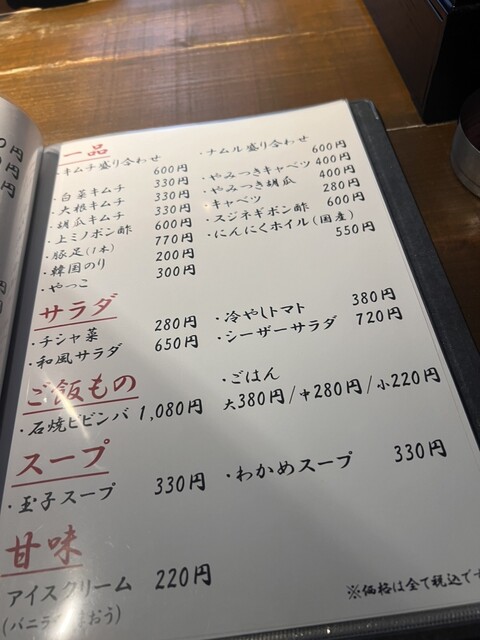 一品
・キムチ盛り合わせ 600円
・白菜キムチ 330円
・大根キムチ 330円
・胡瓜キムチ 330円
・上ミノポン酢 600円
・豚足(1本) 770円
・韓国のり 200円
・やっこ 300円
・ナムル盛り合わせ 600円
・やみつきキャベツ 400円
・やみつき胡瓜 400円
・キャベツ 280円
・スジネギポン酢 600円
・にんにくホイル(国産) 550円
サラダ
・チシャ菜 280円
・和風サラダ 650円
・冷やしトマト 380円
・シーザーサラダ 720円
ご飯もの
・石焼ビビンバ 1,080円
・ごはん
大380円/中280円/小220円
スープ
・玉子スープ 330円
・わかめスープ 330円
甘味
アイスクリーム 220円
(バニラ おう)
※価格は全て税込で